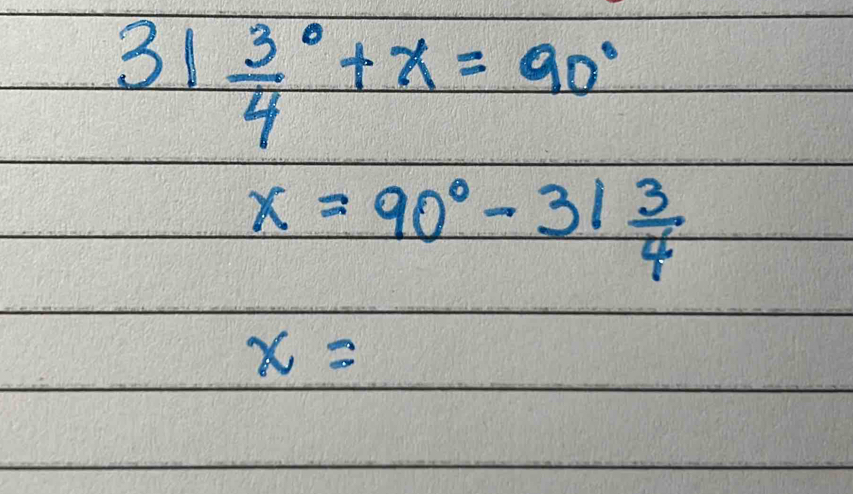 31 3/4° + x = 90°
x = 90° - 31 3/4
x =